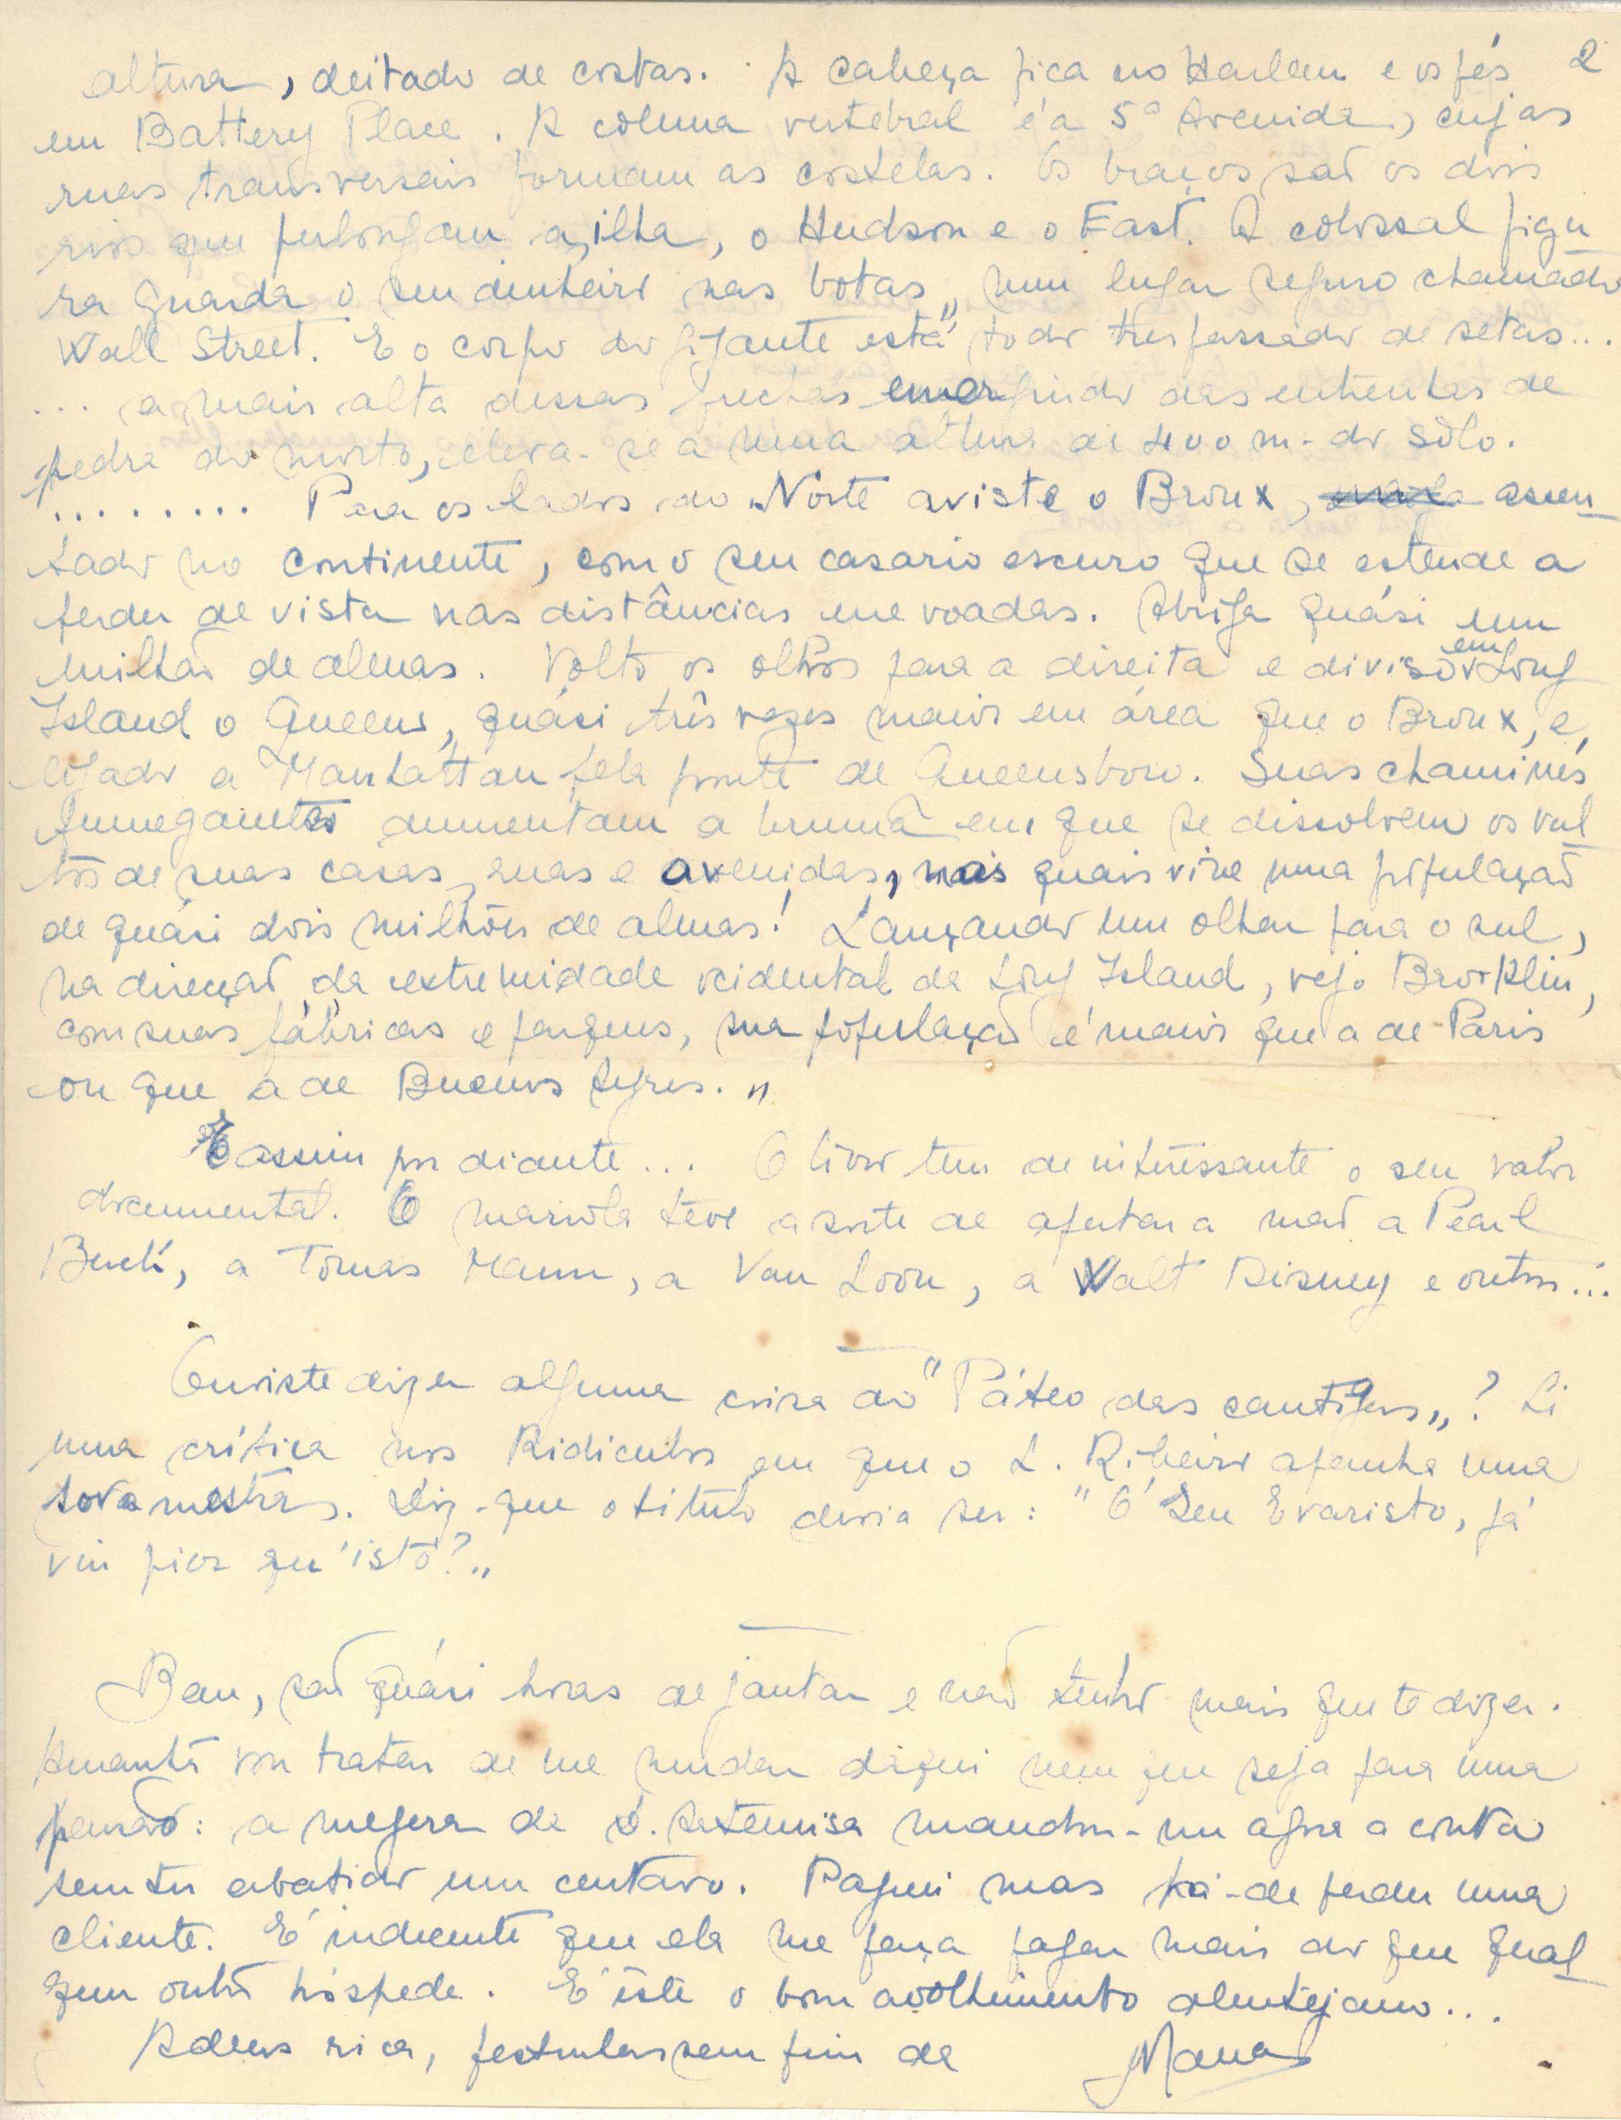 2
altura, deitado de costas. A cabeça fica no Harlem e os pés
em Battery Place. A coluna vertebral é a 5ª Avenida, cujas
ruas transversais formam as costelas. Os braços são os dois
rios que prolongam a ilha, o Hudson e o East. A colossal figu
ra guarda o seu dinheiro nas botas,, num lugar seguro chamado
Wall Street. E o corpo do gigante está todo trespassado de setas...
... a mais alta dessas frechas emergindo das entranhas de
pedra do morto, eleva-se a uma altura de 400 m. do sólo.
......... Para os lados do Norte aviste o Bronx, assen-
tado no continente, com o seu casario escuro que se estende a
perder de vista nas distâncias enevoadas. Abriga quási um
milhão de almas. Volto os olhos para a direita e diviso em Long
Island o Queens, quási três vezes maior em área que o Bronx, e,
ligado a Manhattan pela ponte de Queensboro. Suas chaminés
fumegantes aumentam a bruma em que se dissolvem os vul-
tos de suas casas, ruas e avenidas, nas quais vive uma população
de quási dois milhões de almas! Lançando um olhar para o sul,
na direcção da extremidade ocidental de Long Island, vejo Brooklin,
com suas fábricas e parques, sua população é maior que a de Paris
ou que a de Buenos Ayres.,,
E assim por diante... O livro tem de interessante o seu valor
documental. O mariola teve a sorte de apertar a mão a Pearl
Buck, a Tomas Mann, a Van Loon, a Walt Disney e outros...
Ouviste dizer alguma coisa do "Páteo das cantigas,,? Li
uma crítica nos Ridiculos em que o L. Ribeiro apanha uma
sova mestra. Diz-que o titulo devia ser: "Ó Seu Evaristo, já
viu pior qu'isto?,,
Bem, são quási horas de jantar e não tenho mais que te dizer.
Amanhã vou tratar de me mudar daqui nem que seja para uma
pensão: a megera da D. Artemisa mandou-me agora a conta
sem ter abatido um centavo. Paguei mas há-de perder uma
cliente. É indecente que ela me faça pagar mais do que qual-
quer outro hóspede. É êste o bom acolhimento alentejano...
Adeus rica, festinhas sem fim da Mana